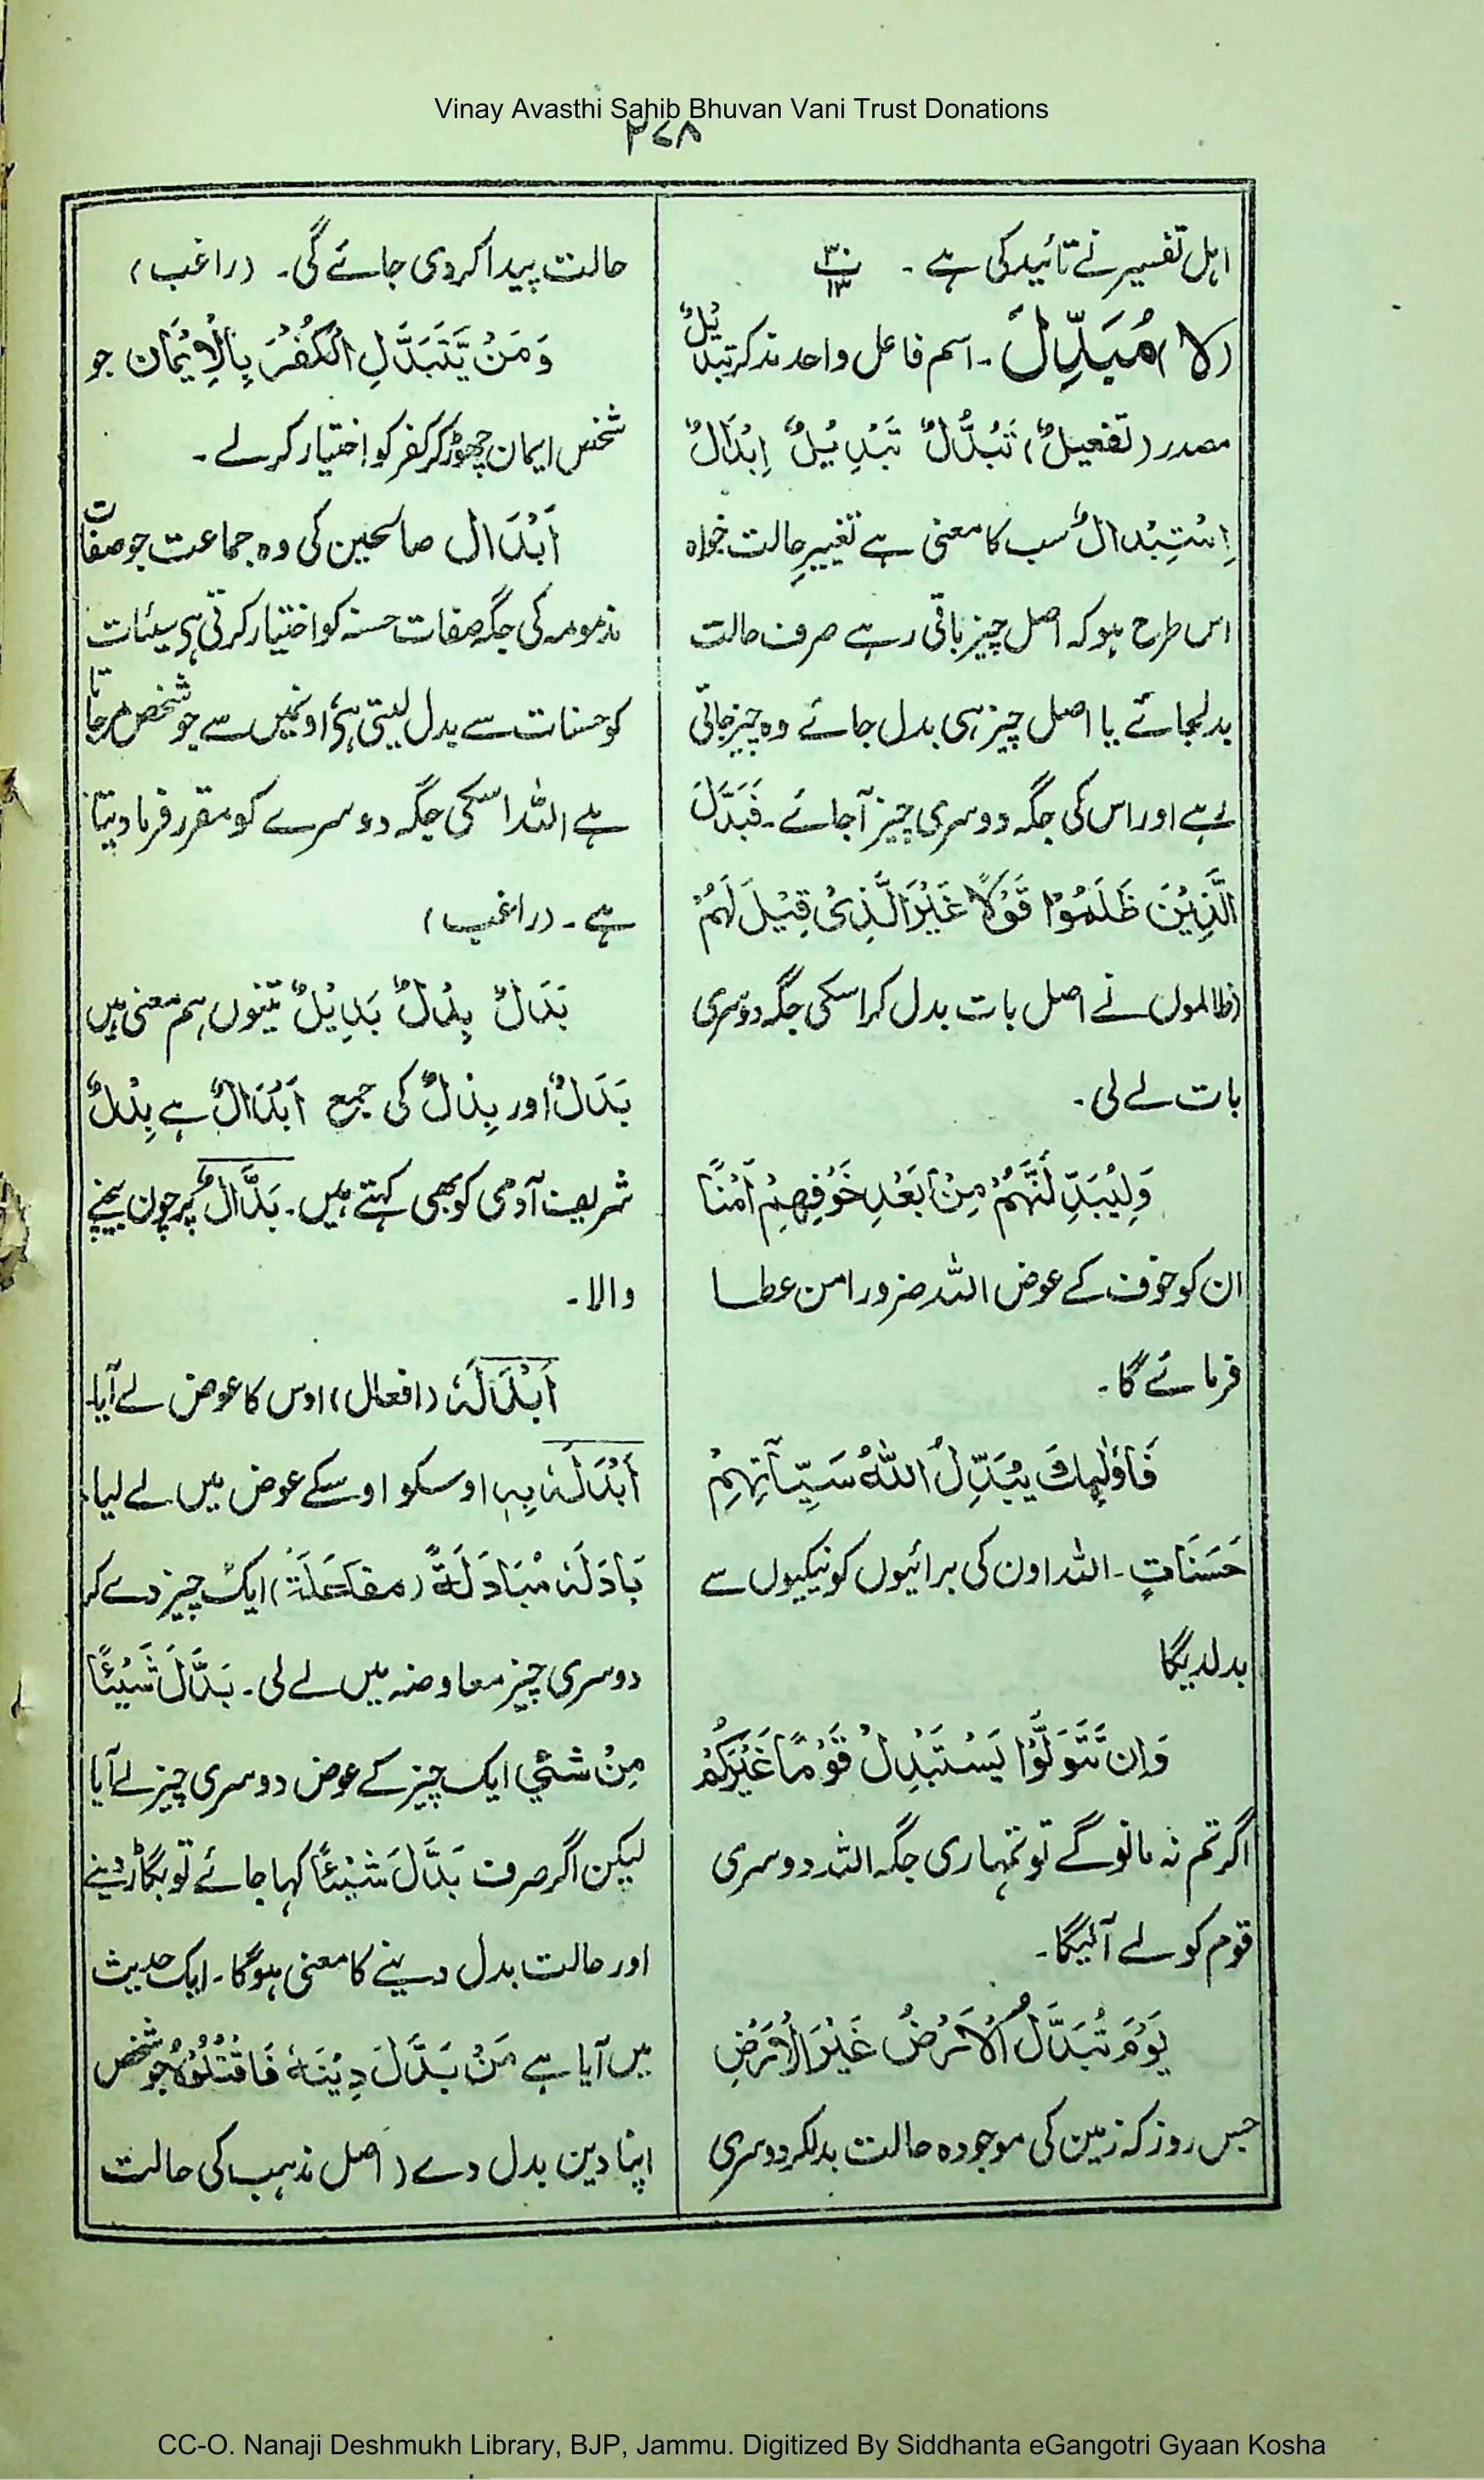 Vinay Avasthi Sahib Bhuvan Vani Trust Donations
۲۷۸
اہل تفسیر نے تائید کی ہے ۔
(لا) مُبَدِّلَ ۔ اسم فاعل واحد مذکر تبدیلٌ
مصدر (تفعیلٌ) تَبَدُّلٌ تَبْدِیْلٌ اِبْدَالٌ
اِسْتِبْدالٌ سب کا معنی ہے تغییرِ حالت خواہ
اس طرح ہو کہ اصل چیز باقی رہے صرف حالت
بدلجائے یا اصل چیز ہی بدل جائے وہ چیز جاتی
رہے اور اس کی جگہ دوسری چیز آجائے ۔ فَبَدَّلَ
الَّذِیْنَ ظَلَمُوْا قَوْلًا غَیْرَ الَّذِیْ قِیْلَ لَهُمْ
ظالموں نے اصل بات بدل کر اسکی جگہ دوسری
بات لے لی ۔
وَلَیُبَدِّلَنَّهُمْ مِنْۢ بَعْدِ خَوْفِهِمْ اَمْنًا
ان کو خوف کے عوض اللہ ضرور امن عطا
فرمائے گا ۔
فَاُولٰٓئِكَ یُبَدِّلُ اللهُ سَیِّاٰتِهِمْ
حَسَنَاتٍ ۔ اللہ اون کی برائیوں کو نیکیوں سے
بدلدیگا
وَاِنْ تَتَوَلَّوْا یَسْتَبْدِلْ قَوْمًا غَیْرَكُمْ
اگر تم نہ مانوگے تو تمہاری جگہ اللہ دوسری
قوم کو لے آئیگا ۔
یَوْمَ تُبَدَّلُ الْاَرْضُ غَیْرَ الْاَرْضِ
جس روز کہ زمین کی موجودہ حالت بدلکر دوسری
حالت پیدا کردی جائے گی ۔ (راغب)
وَمَنْ یَّتَبَدَّلِ الْكُفْرَ بِالْاِیْمَانِ جو
شخص ایمان چھوڑ کر کفر کو اختیار کرلے ۔
اَبْدَال صالحین کی وہ جماعت جو صفات
مذمومہ کی جگہ صفات حسنہ کو اختیار کرتی ہی سیئات
کو حسنات سے بدل لیتی ہی اونمیں سے جو شخص مرجاتا
ہے اللہ اسکی جگہ دوسرے کو مقرر فرما دیتا
ہے ۔ (راغب)
بَدَلٌ بِدْلٌ بَدِیْلٌ تینوں ہم معنی ہیں
بَدَلٌ اور بِدْلٌ کی جمع اَبْدَالٌ ہے بِدْلٌ
شریف آدمی کو بھی کہتے ہیں ۔ بَدَّالٌ پرچون بیچنے
والا ۔
اَبْدَلَهٗ (افعال) اوس کا عوض لے آیا ۔
اَبْدَلَهٗ بِہٖ اوسکو اوسکے عوض میں لے لیا ۔
بَادَلَهٗ مُبَادَلَةً (مفاعلۃ) ایک چیز دے کر
دوسری چیز معاوضہ میں لے لی ۔ بَدَّلَ شَیْئًا
مِنْ شَئْیٍ ایک چیز کے عوض دوسری چیز لے آیا
لیکن اگر صرف بَدَّلَ شَیْئًا کہا جائے تو بگاڑ دینے
اور حالت بدل دینے کا معنی ہوگا ۔ ایک حدیث
میں آیا ہے مَنْ بَدَّلَ دِیْنَهٗ فَاقْتُلُوْهُ جو شخص
اپنا دین بدل دے (اصل مذہب کی حالت
CC-O. Nanaji Deshmukh Library, BJP, Jammu. Digitized By Siddhanta eGangotri Gyaan Kosha